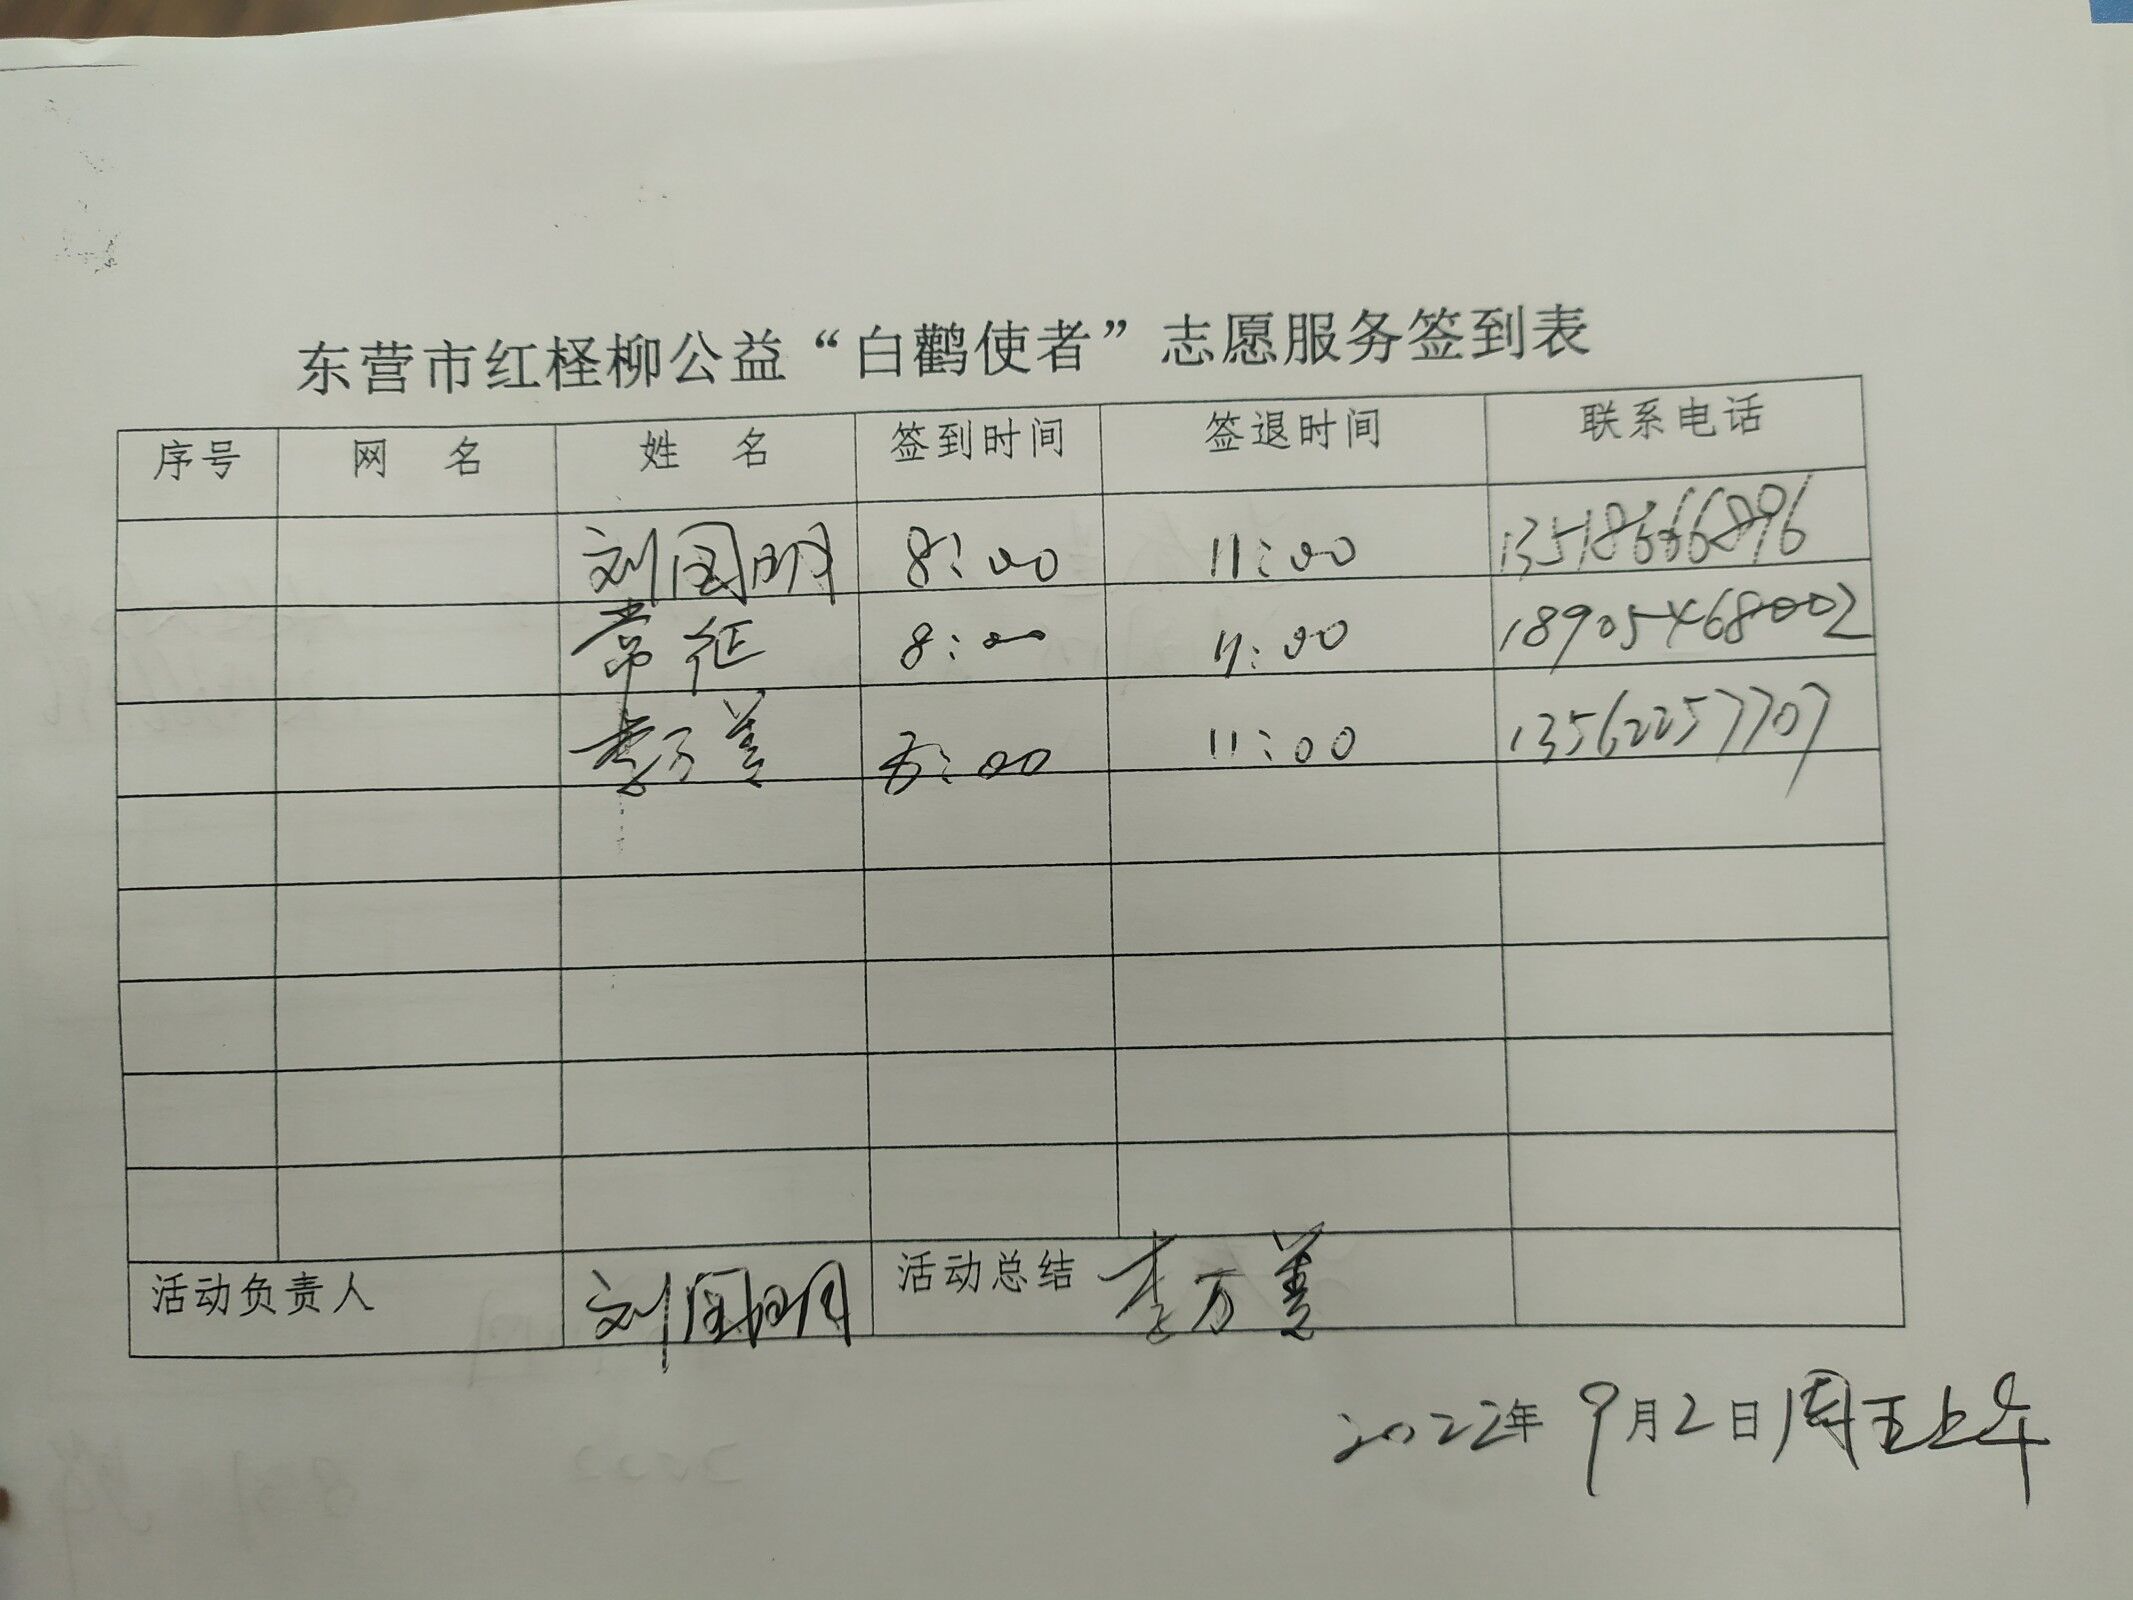 东营市红柽柳公益“白鹳使者”志愿服务签到表
序号 网 名 姓 名 签到时间 签退时间 联系电话
刘国明 8:00 11:00 13518666896
常征 8:00 11:00 18905468002
李万美 8:00 11:00 13562257707
活动负责人 刘国明 活动总结 李万美
2022年 9月2日周五上午